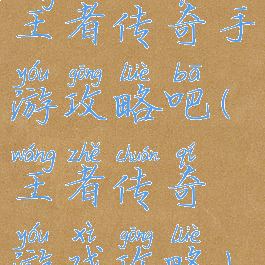 王者传奇手
yóu gōng lüè bā
游攻略吧(
wáng zhě chuán qí
王者传奇
yóu xì gōng lüè
游戏攻略)